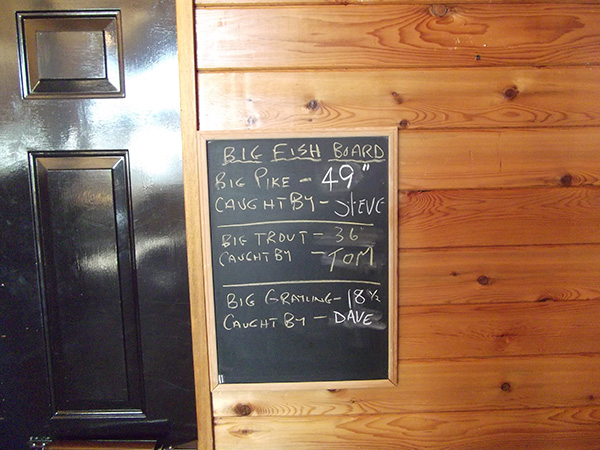 BIG FISH BOARD
BIG PIKE - 49"
CAUGHT BY - STEVE
BIG TROUT - 36
CAUGHT BY - TOM
BIG GRAYLING - 18 1/2
CAUGHT BY - DAVE